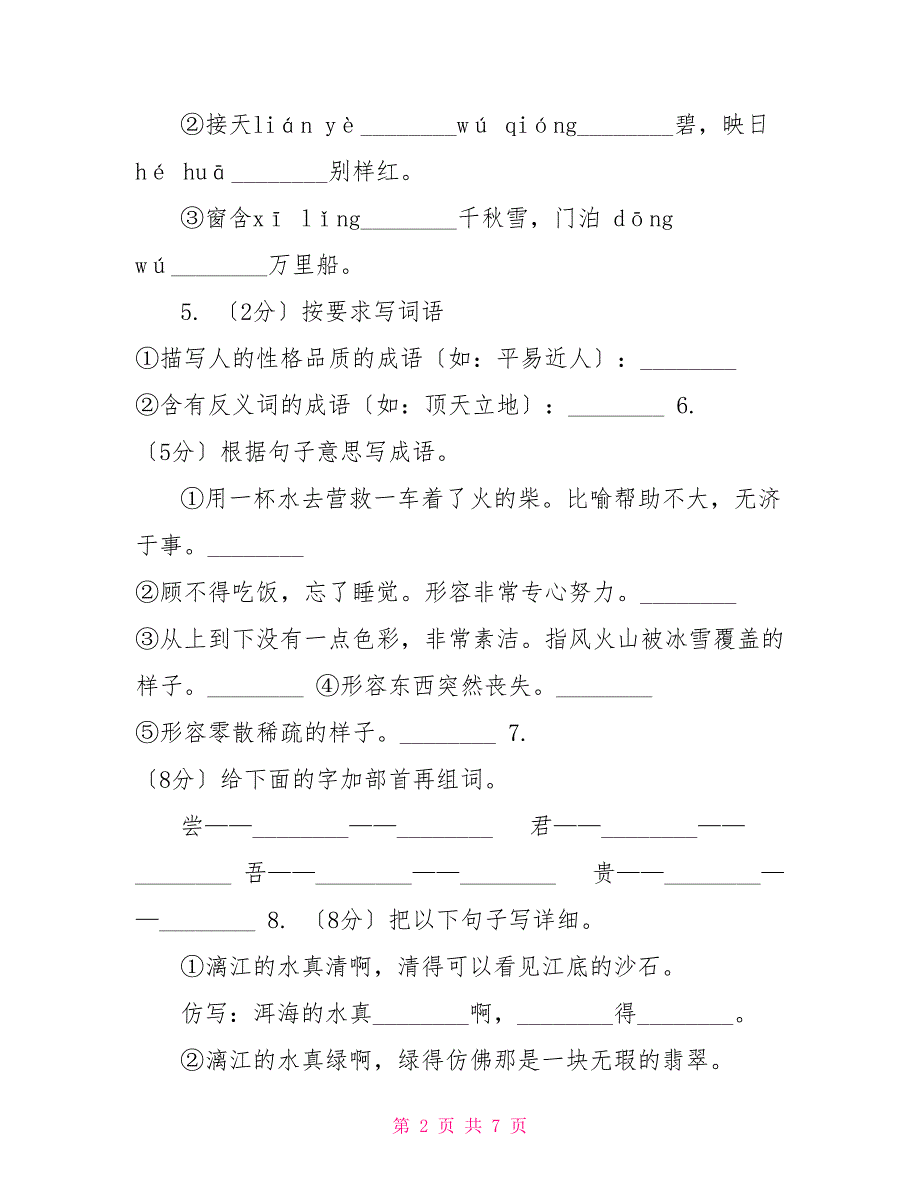 ②接天lián yè________wú qióng________碧，映日
hé huā________别样红。
③窗含xī lǐng________千秋雪，门泊 dōng
wú________万里船。
5. 〔2分〕按要求写词语
①描写人的性格品质的成语〔如：平易近人〕：________
②含有反义词的成语〔如：顶天立地〕：________ 6.
〔5分〕根据句子意思写成语。
①用一杯水去营救一车着了火的柴。比喻帮助不大，无济
于事。________
②顾不得吃饭，忘了睡觉。形容非常专心努力。________
③从上到下没有一点色彩，非常素洁。指风火山被冰雪覆盖的
样子。________ ④形容东西突然丧失。________
⑤形容零散稀疏的样子。________ 7.
〔8分〕给下面的字加部首再组词。
尝——________——________ 君——________——
________ 吾——________——________ 贵——________—
—________ 8. 〔8分〕把以下句子写详细。
①漓江的水真清啊，清得可以看见江底的沙石。
仿写：洱海的水真________啊，________得________。
②漓江的水真绿啊，绿得仿佛那是一块无瑕的翡翠。
第 2 页 共 7 页